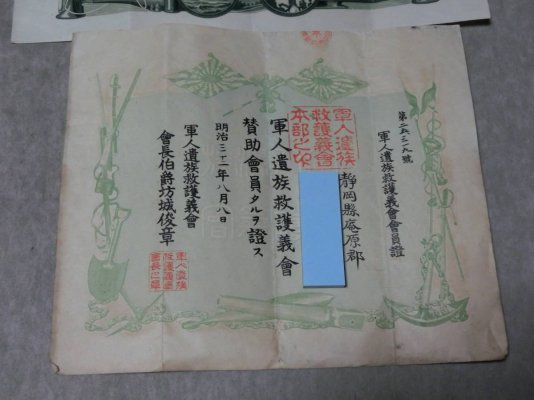 軍人遺族救護義會會員證
静岡縣庵原郡
軍人遺族救護義會
賛助會員タルヲ證ス
明治三十一年八月八日
軍人遺族救護義會
會長伯爵坊城俊章
軍人遺族
救護義會
本部之印